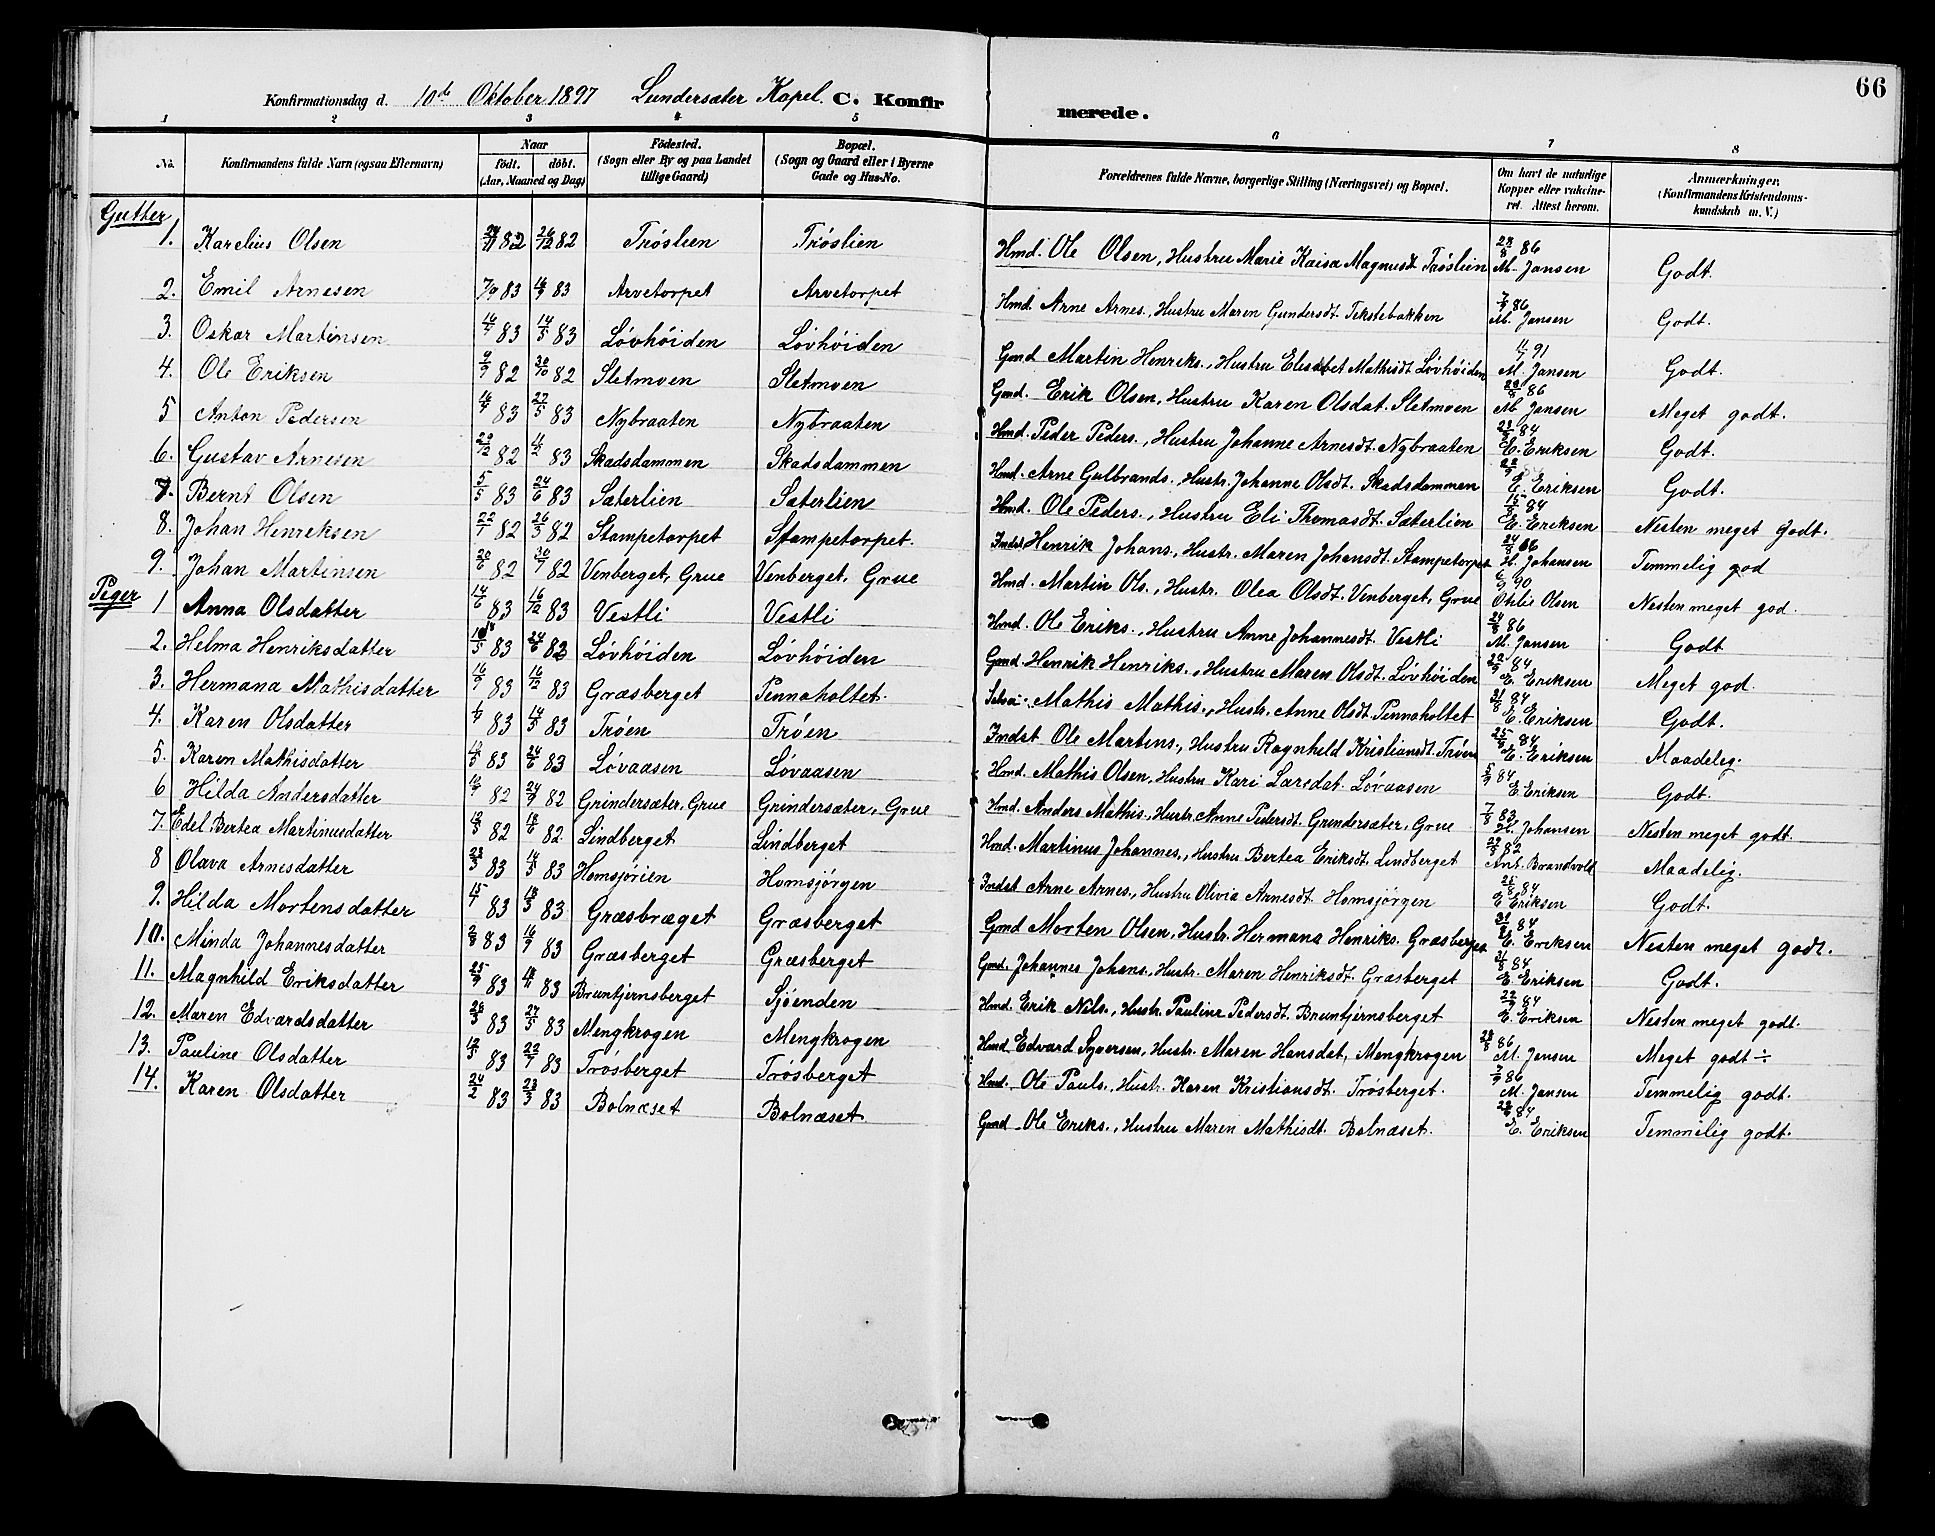 66
Konfirmationsdag d. 10de Oktober 1897 Lundersæter Kapel. C. Konfirmerede.
1 2 3 4 5 6 7 8
No. Konfirmandens fulde Navn (ogsaa Efternavn) Naar födt. döbt. (Aar, Maaned og Dag) Födested. (Sogn eller By og paa Landet tillige Gaard) Bopæl. (Sogn og Gaard eller i Byerne Gade og Hus-No. Forældrenes fulde Navne, borgerlige Stilling (Næringsvei) og Bopæl. Om havt de naturlige Kopper eller vakcineret. Attest herom. Anmærkninger. (Konfirmandens Kristendomskundskab m. V.)
Gutter
1. Karelius Olsen 82 26/12 82 Trøslien Trøslien Hmd. Ole Olsen, Hustru Marie Kaisa Magnusdt Trøslien 28/8 86 M. Jansen Godt.
2. Emil Arnesen 7/9 83 16/9 83 Arvetorpet Arvetorpet Hmd. Arne Arnes., Hustru Maren Gundersdt. Tekstebakken 7/9 86 M. Jansen Godt.
3. Oskar Martinsen 16/4 83 14/5 83 Løvhøiden Løvhøiden Gmd Martin Henriks., Hustru Elisabet Mathisdt. Løvhøiden 11/7 91 M. Jansen Godt.
4. Ole Eriksen 9/9 82 30/10 82 Sletmoen Sletmoen Gmd. Erik Olsen, Hustru Karen Olsdat. Sletmoen 28/8 86 M. Jansen Meget godt.
5 Anton Pedersen 16/4 83 27/5 83 Nybraaten Nybraaten Hmd. Peder Peders., Hustru Johanne Arnesdt. Nybraaten 23/8 84 E. Eriksen Godt.
6. Gustav Arnesen 29/12 82 83 Skadsdammen Skadsdammen Hmd. Arne Gulbrands., Hustr. Johanne Olsdt. Skadsdammen 22/9 E. Eriksen Godt.
7. Bernt Olsen 5/5 83 24/6 83 Sæterlien Sæterlien Hmd. Ole Peders., Hustru Eli Thomasdt. Sæterlien 15/9 84 E. Eriksen Nesten meget godt.
8. Johan Henriksen 22/1 82 26/3 82 Stampetorpet Stampetorpet. Indst Henrik Johans., Hustr. Maren Johansdt. Stampetorpet 24/8 86 H. Johansen Temmelig god
9. Johan Martinsen 20/6 82 30/7 82 Venberget, Grue Venberget, Grue Hmd. Martin Ols., Hustr. Olea Olsdt. Venberget, Grue 6/9 90 Otilie Olsen Nesten meget god.
Piger
1 Anna Olsdatter 14/6 83 16/12 83 Vestli Vestli Hmd. Ole Eriks., Hustru Anne Johannesdt. Vestli 24/8 86 M. Jansen Godt
2. Helma Henriksdatter 83 24/6 83 Løvhøiden Løvhøiden Gmd. Henrik Henriks., Hustru Maren Olsdt. Løvhøiden 22/9 84 E. Eriksen Meget god.
3. Hermana Mathisdatter 16/9 83 16/12 83 Græsberget Pennaholtet. Mathis Mathis., Hustr. Anne Olsdt. Pennaholtet 31/8 84 E. Eriksen Godt.
4. Karen Olsdatter 83 14/5 83 Trøen Trøen Indst Ole Martens., Hustru Ragnhild Kristiansdt. Trøen 25/8 84 E. Eriksen Maadelig.
5. Karen Mathisdatter 83 24/6 83 Løvaasen Løvaasen Hmd. Mathis Olsen, Hustru Kari Larsdat. Løvaasen 5/9 84 E Eriksen Godt.
6 Hilda Andersdatter 82 24/9 82 Grindersæter, Grue Grindersæter, Grue Hmd. Anders Mathis., Hustr. Anne Pedersdt. Grindersæter, Grue 7/8 83 H. Johansen Nesten meget godt.
7. Edel Bertea Martinusdatter 12/3 82 18/6 82 Lindberget Lindberget Hmd. Martinus Johannes., Hustru Bertea Eriksdt. Lindberget 82 Ant. Brandvold Maadelig.
8 Olava Arnesdatter 23/3 83 14/5 83 Homsjörien Homsjörgen Indst Arne Arnes., Hustru Olivia Arnesdt. Homsjörgen 25/8 84 E Eriksen Godt.
9. Hilda Mortensdatter 15/4 83 13/5 83 Græsbræget Græsberget Gmd Morten Olsen, Hustr. Hermana Henriks. Græsberget 31/8 84 E. Eriksen Nesten meget godt.
10. Minda Johannesdatter 2/8 83 16/9 83 Græsberget Græsberget Gmd. Johannes Johans., Hustr. Maren Henriksdt. Græsberget 31/8 84 E. Eriksen Godt.
11. Magnhild Eriksdatter 25/9 83 83 Bruntjernsberget Sjøenden Hmd. Erik Nils., Hustr. Pauline Pedersdt. Bruntjernsberget 22/9 84 E. Eriksen Nesten meget godt.
12. Maren Edvardsdatter 26/3 83 27/5 83 Mengkrogen Mengkrogen Hmd Edvard Syversen, Hustr. Maren Hansdat, Mengkrogen 28/8 86 M. Jansen Meget godt ÷
13. Pauline Olsdatter 12/5 83 22/7 83 Trøsberget Trøsberget Hmd. Ole Pauls., Hustr. Karen Kristiansdt. Trøsberget. 7/9 86 M. Jansen Temmelig godt.
14. Karen Olsdatter 24/2 83 23/3 83 Bolnæset Bolnæset Gmd Ole Eriks., Hustru Maren Mathisdt. Bolnæset. 22/9 84 E. Eriksen Temmelig godt.